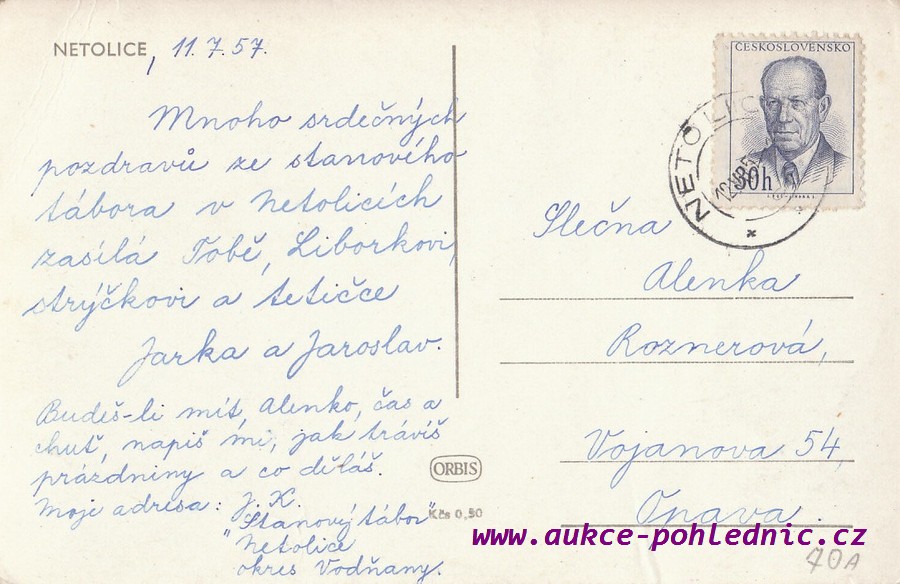 NETOLICE, 11.7.57.
Mnoho srdečných
pozdravů ze stanového
tábora v Netolicích
zasílá Tobě, Liborkovi,
strýčkovi a tetičce
Jarka a Jaroslav.
Budeš-li mít, Alenko, čas a
chuť, napiš mi, jak trávíš
prázdniny a co děláš.
Moje adresa: J. K.
"Stanový tábor"
Netolice
okres Vodňany.
ORBIS
Kčs 0,50
ČESKOSLOVENSKO
30h
NETOLICE
Slečna
Alenka
Roznerová,
Vojanova 54,
Opava.
www.aukce-pohlednic.cz
70A